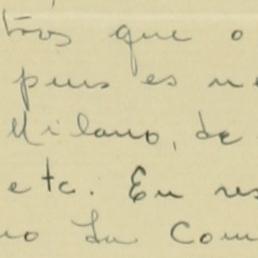 tros que o
pues es ne
Milano, de
etc. En res
no La Com